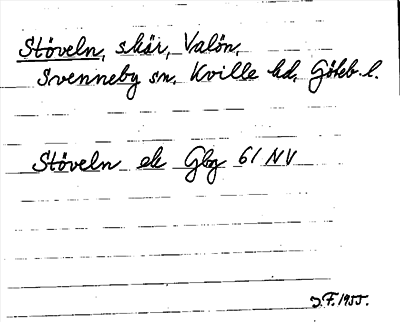 Stöveln, skär, Valön,
Svenneby sn, Kville hd, Göteb. l.
Stöveln ek Gbg 61 NV
J.F. 1955.